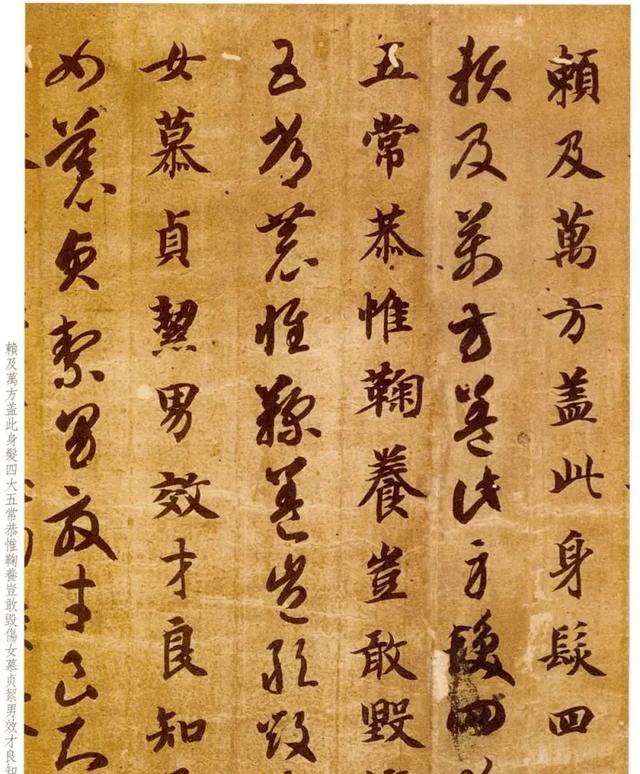 賴及萬方盖此身髮四
賴及萬方盖此身髮四
五常恭惟鞠養豈敢毀
五常恭惟鞠養豈敢毀
女慕貞絜男效才良知
女慕貞絜男效才良知
賴及萬方盖此身髮四大五常恭惟鞠養豈敢毀傷女慕贞絜男效才良知